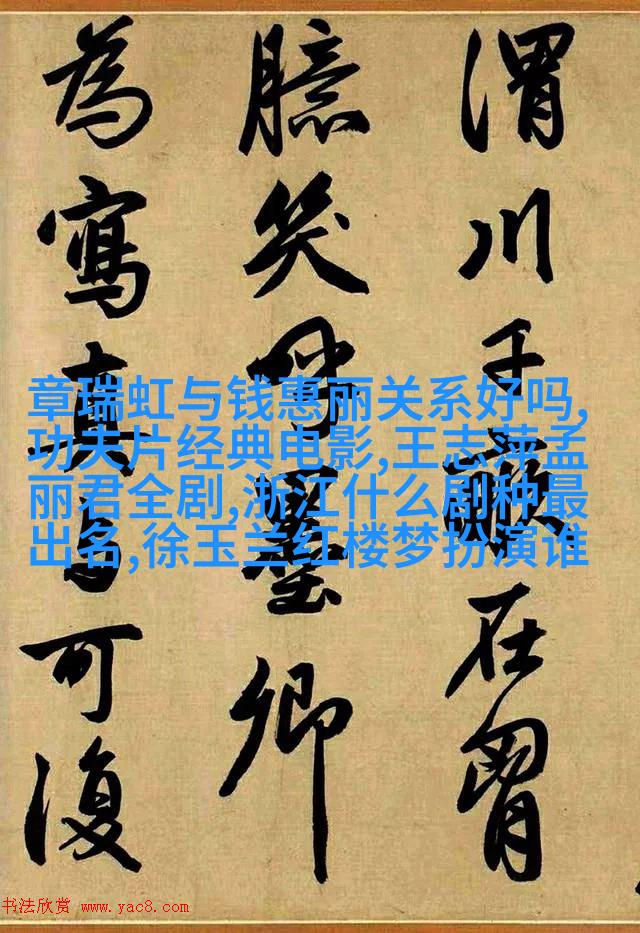 渭川千畝在胷
臆笑呼墨卿
為寫真与可復
章瑞虹与钱惠丽关系好吗,
功夫片经典电影,王志萍孟
丽君全剧,浙江什么剧种最
出名,徐玉兰红楼梦扮演谁
书法欣赏 www.yac8.com